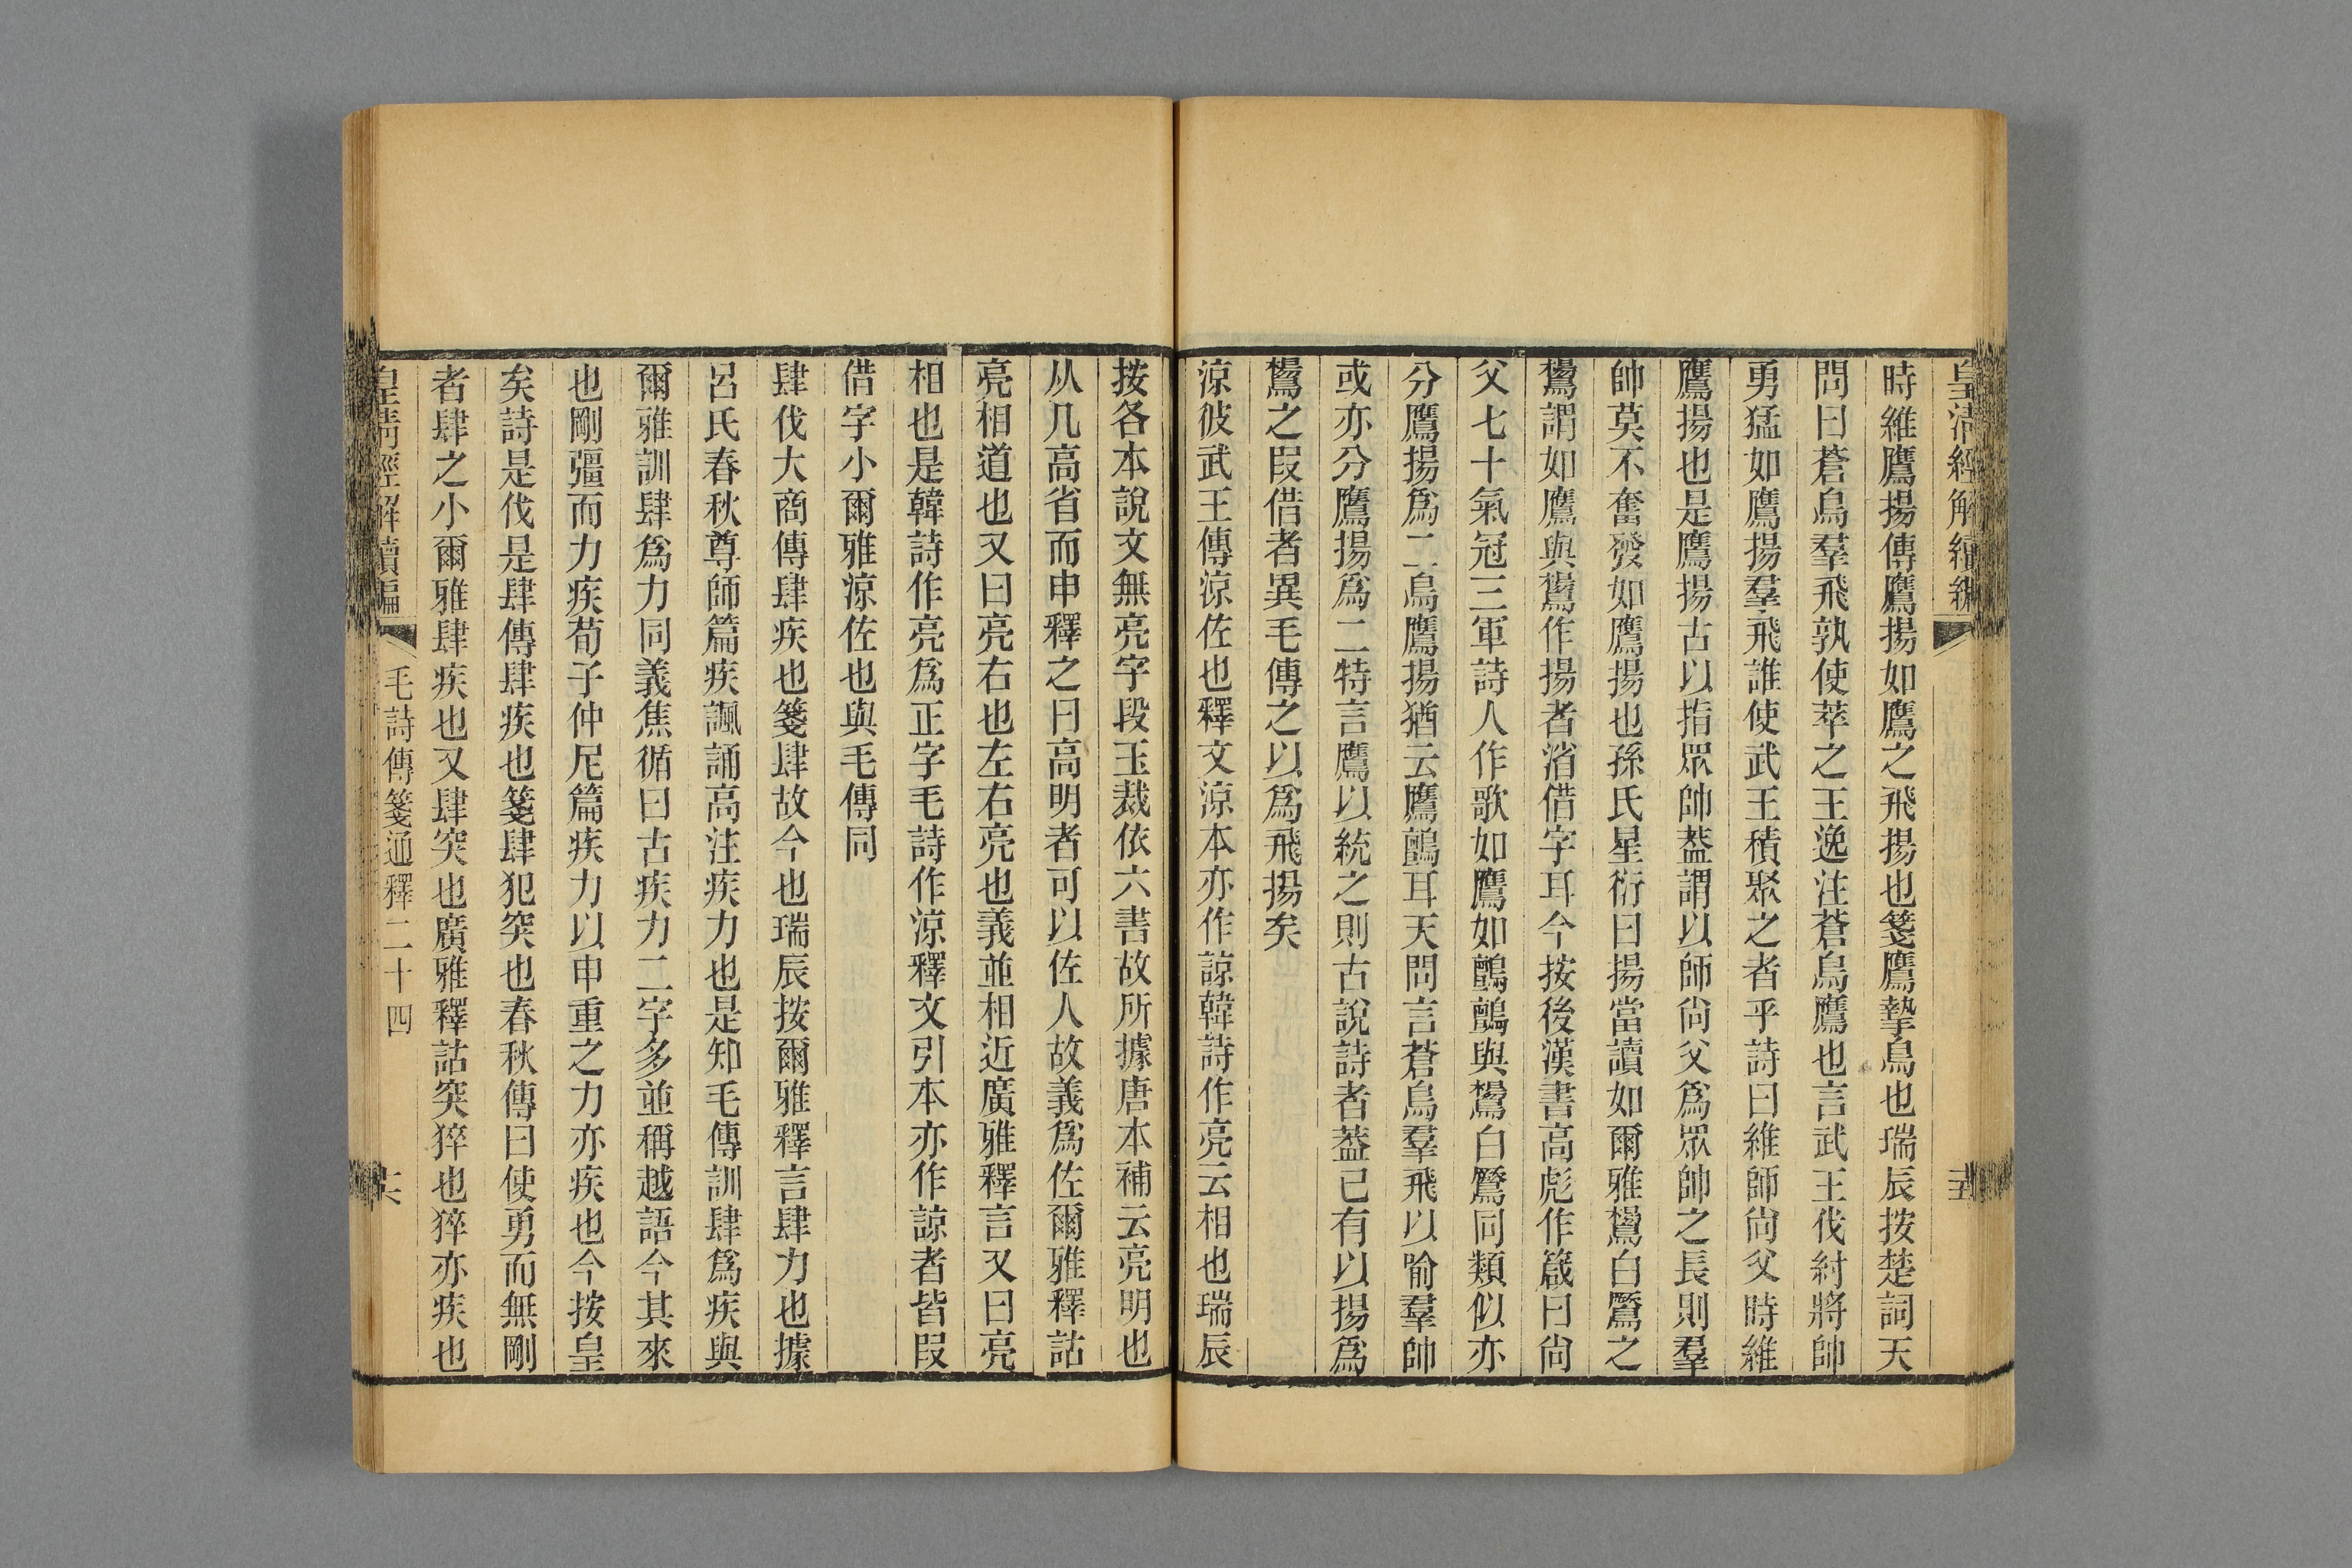 皇清經解續編
時維鷹揚傳鷹揚如鷹之飛揚也箋鷹摯鳥也瑞辰按楚詞天
問曰蒼鳥羣飛孰使萃之王逸注蒼鳥鷹也言武王伐紂將帥
勇猛如鷹揚羣飛誰使武王積聚之者乎詩曰維師尙父時維
鷹揚也是鷹揚古以指眾帥葢謂以師尙父爲眾帥之長則羣
帥莫不奮發如鷹揚也孫氏星衍曰揚當讀如爾雅鸉白鷢之
鸉謂如鷹與鸉作揚者渻借字耳今按後漢書高彪作箴曰尙
父七十氣冠三軍詩人作歌如鷹如鸇鸇與鸉白鷢同類似亦
分鷹揚爲二鳥鷹揚猶云鷹鸇耳天問言蒼鳥羣飛以喻羣帥
或亦分鷹揚爲二特言鷹以統之則古說詩者葢已有以揚爲
鸉之叚借者異毛傳之以爲飛揚矣
涼彼武王傳涼佐也釋文涼本亦作諒韓詩作亮云相也瑞辰
按各本說文無亮字段玉裁依六書故所據唐本補云亮明也
从几高省而申釋之曰高明者可以佐人故義爲佐爾雅釋詁
亮相道也又曰亮右也左右亮也義並相近廣雅釋言又曰亮
相也是韓詩作亮爲正字毛詩作涼釋文引本亦作諒者皆叚
借字小爾雅涼佐也與毛傳同
肆伐大商傳肆疾也箋肆故今也瑞辰按爾雅釋言肆力也據
呂氏春秋尊師篇疾諷誦高注疾力也是知毛傳訓肆爲疾與
爾雅訓肆爲力同義焦循曰古疾力二字多並稱越語今其來
也剛彊而力疾荀子仲尼篇疾力以申重之力亦疾也今按皇
矣詩是伐是肆傳肆疾也箋肆犯突也春秋傳曰使勇而無剛
者肆之小爾雅肆疾也又肆突也廣雅釋詁突猝也猝亦疾也
皇清經解續編 毛詩傳箋通釋二十四